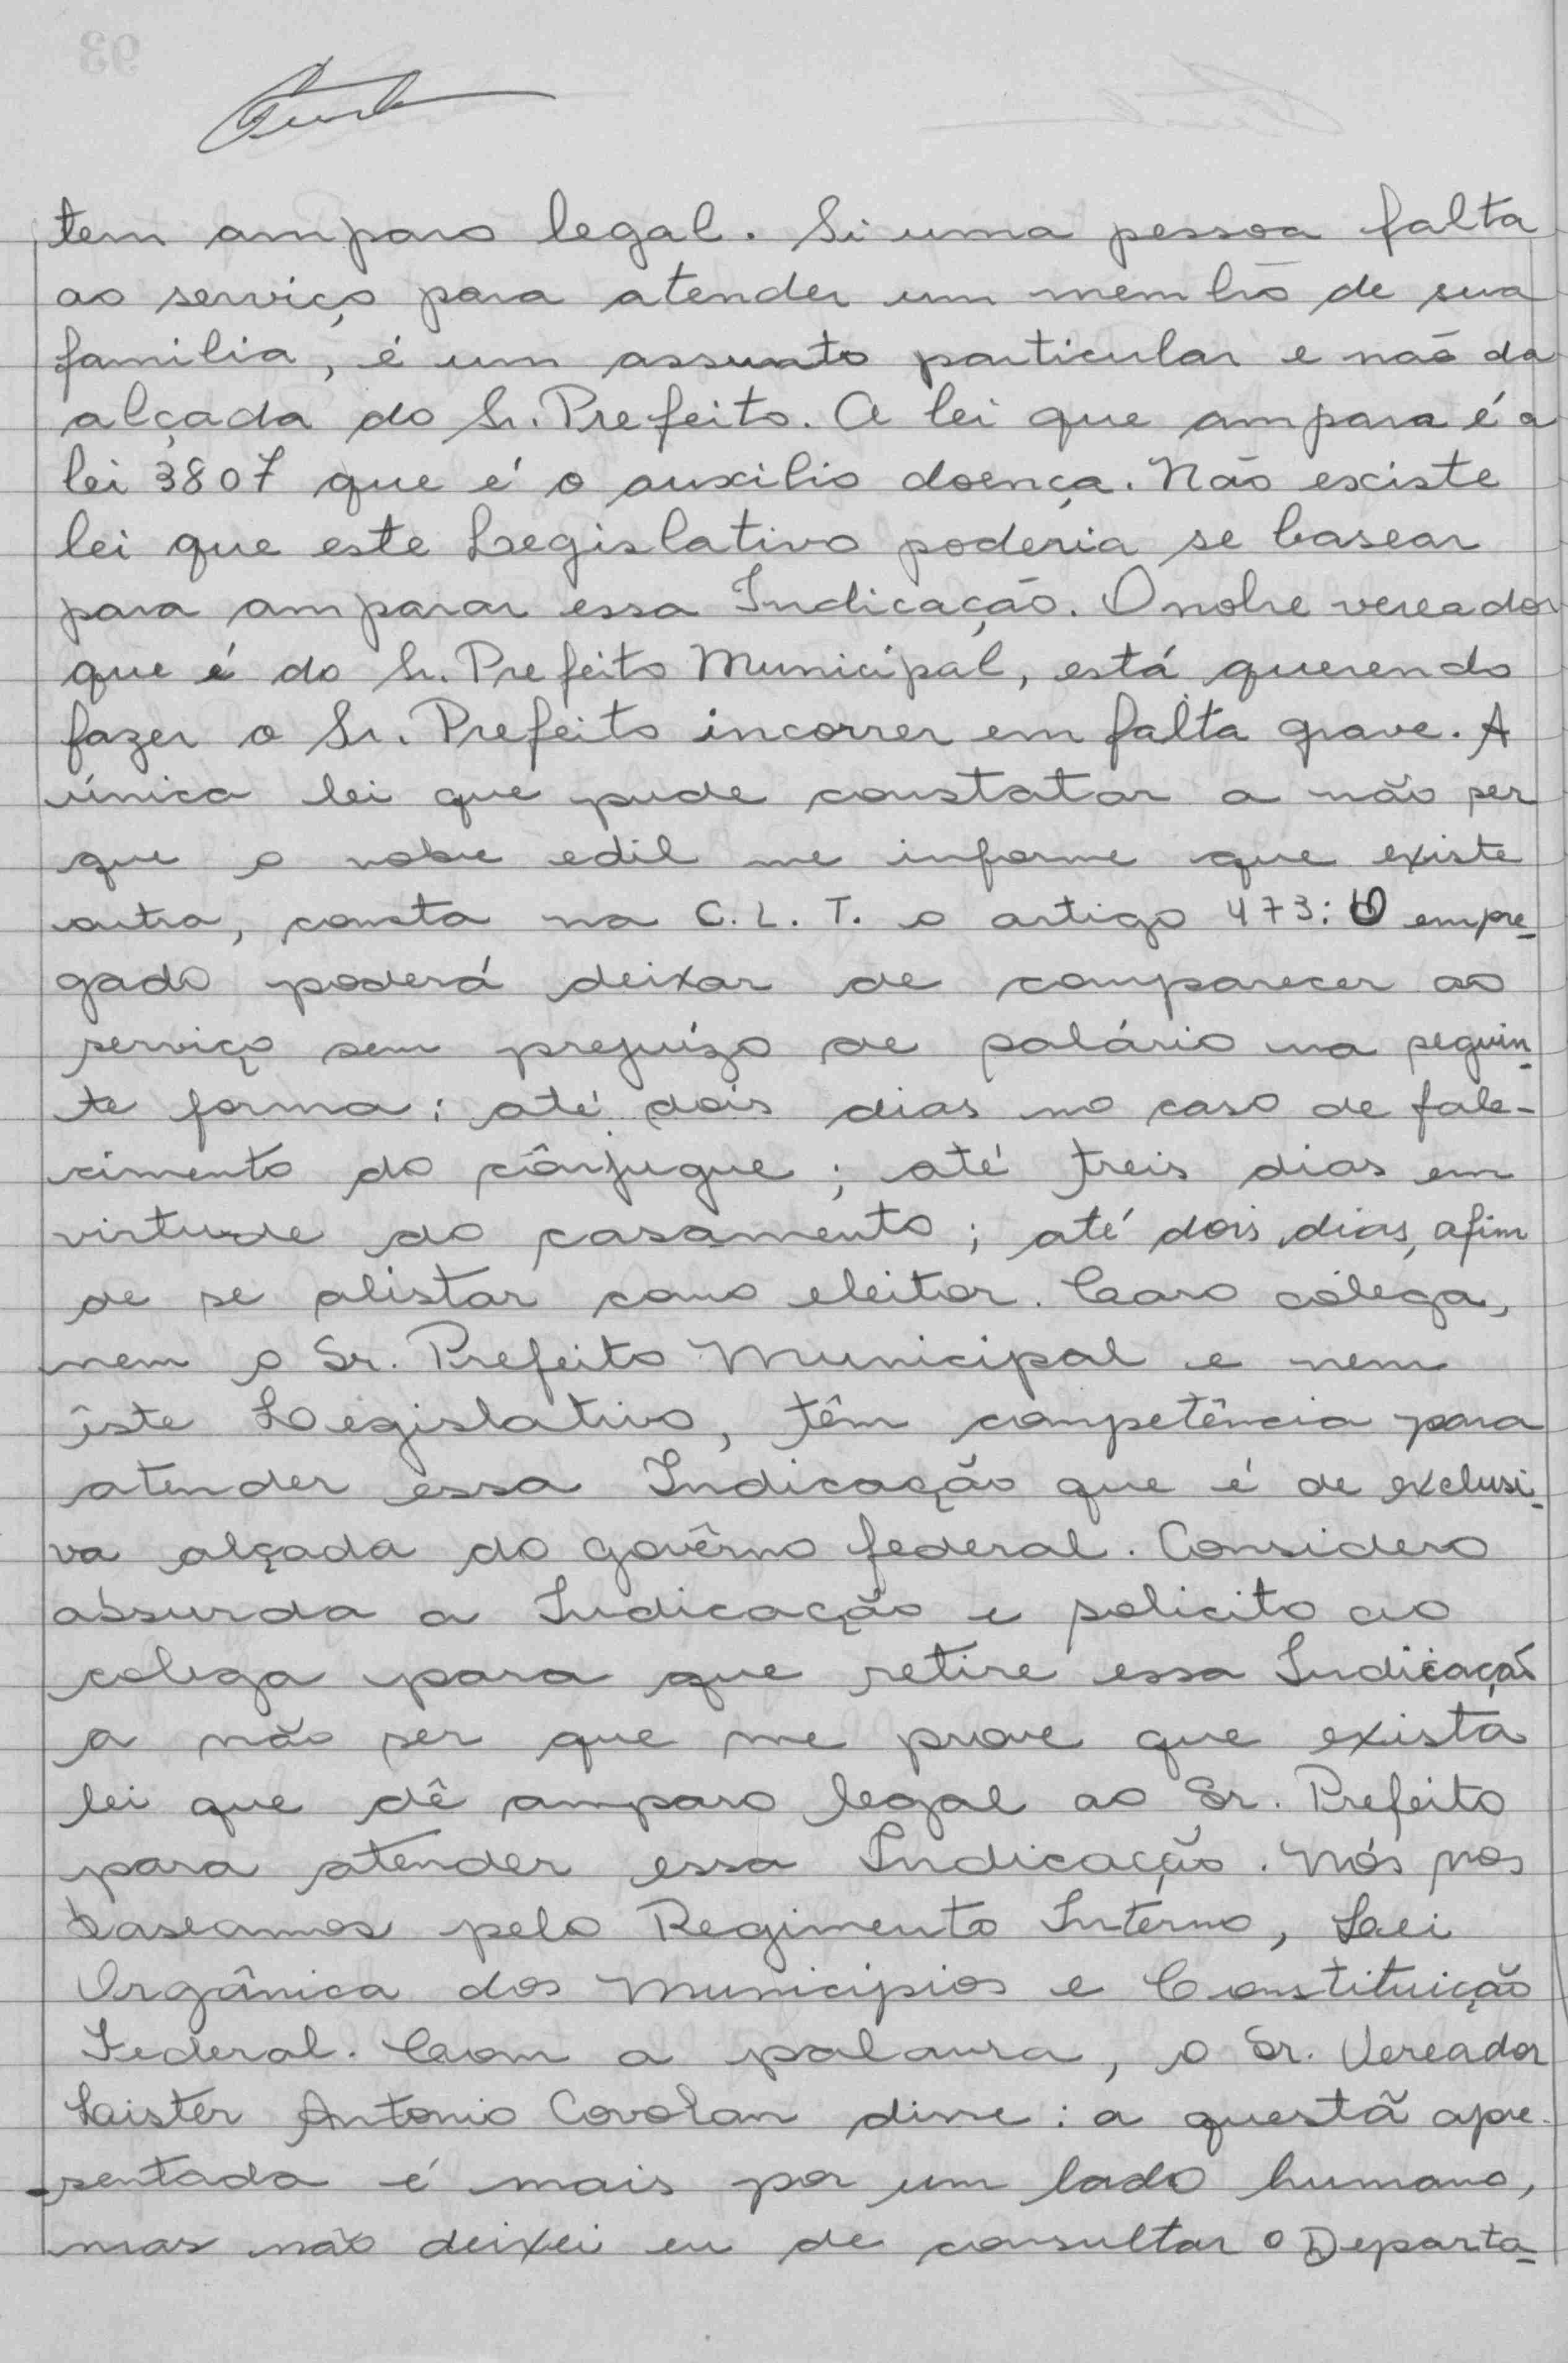 tem amparo legal. Si uma pessoa falta
ao serviço para atender um membro de sua
familia, é um assunto particular e não da
alçada do Sr. Prefeito. A lei que ampara é a
lei 3807 que é o auxilio doença. Não existe
lei que este Legislativo poderia se basear
para amparar essa Indicação. O nobre vereador
que é do Sr. Prefeito Municipal, está querendo
fazer o Sr. Prefeito incorrer em falta grave. A
única lei que pude constatar a não ser
que o nobre edil me informe que existe
outra, consta na C. L. T. o artigo 473: O empre-
gado poderá deixar de comparecer ao
serviço sem prejuízo de salário na seguin-
te forma: até dois dias no caso de fale-
cimento do cônjugue; até treis dias em
virtude do casamento; até dois dias, afim
de se alistar como eleitor. Caro colega,
nem o Sr. Prefeito Municipal e nem
êste Legislativo, têm competência para
atender essa Indicação que é de exclusi-
va alçada do govêrno federal. Considero
absurda a Indicação e solicito ao
colega para que retire essa Indicação
a não ser que me prove que exista
lei que dê amparo legal ao Sr. Prefeito
para atender essa Indicação. Nós nos
baseamos pelo Regimento Interno, Lei
Orgânica dos Municipios e Constituição
Federal. Com a palavra, o Sr. Vereador
Laister Antonio Covolan disse: a questã apre-
sentada é mais por um lado humano,
mas não deixei eu de consultar o Departa-